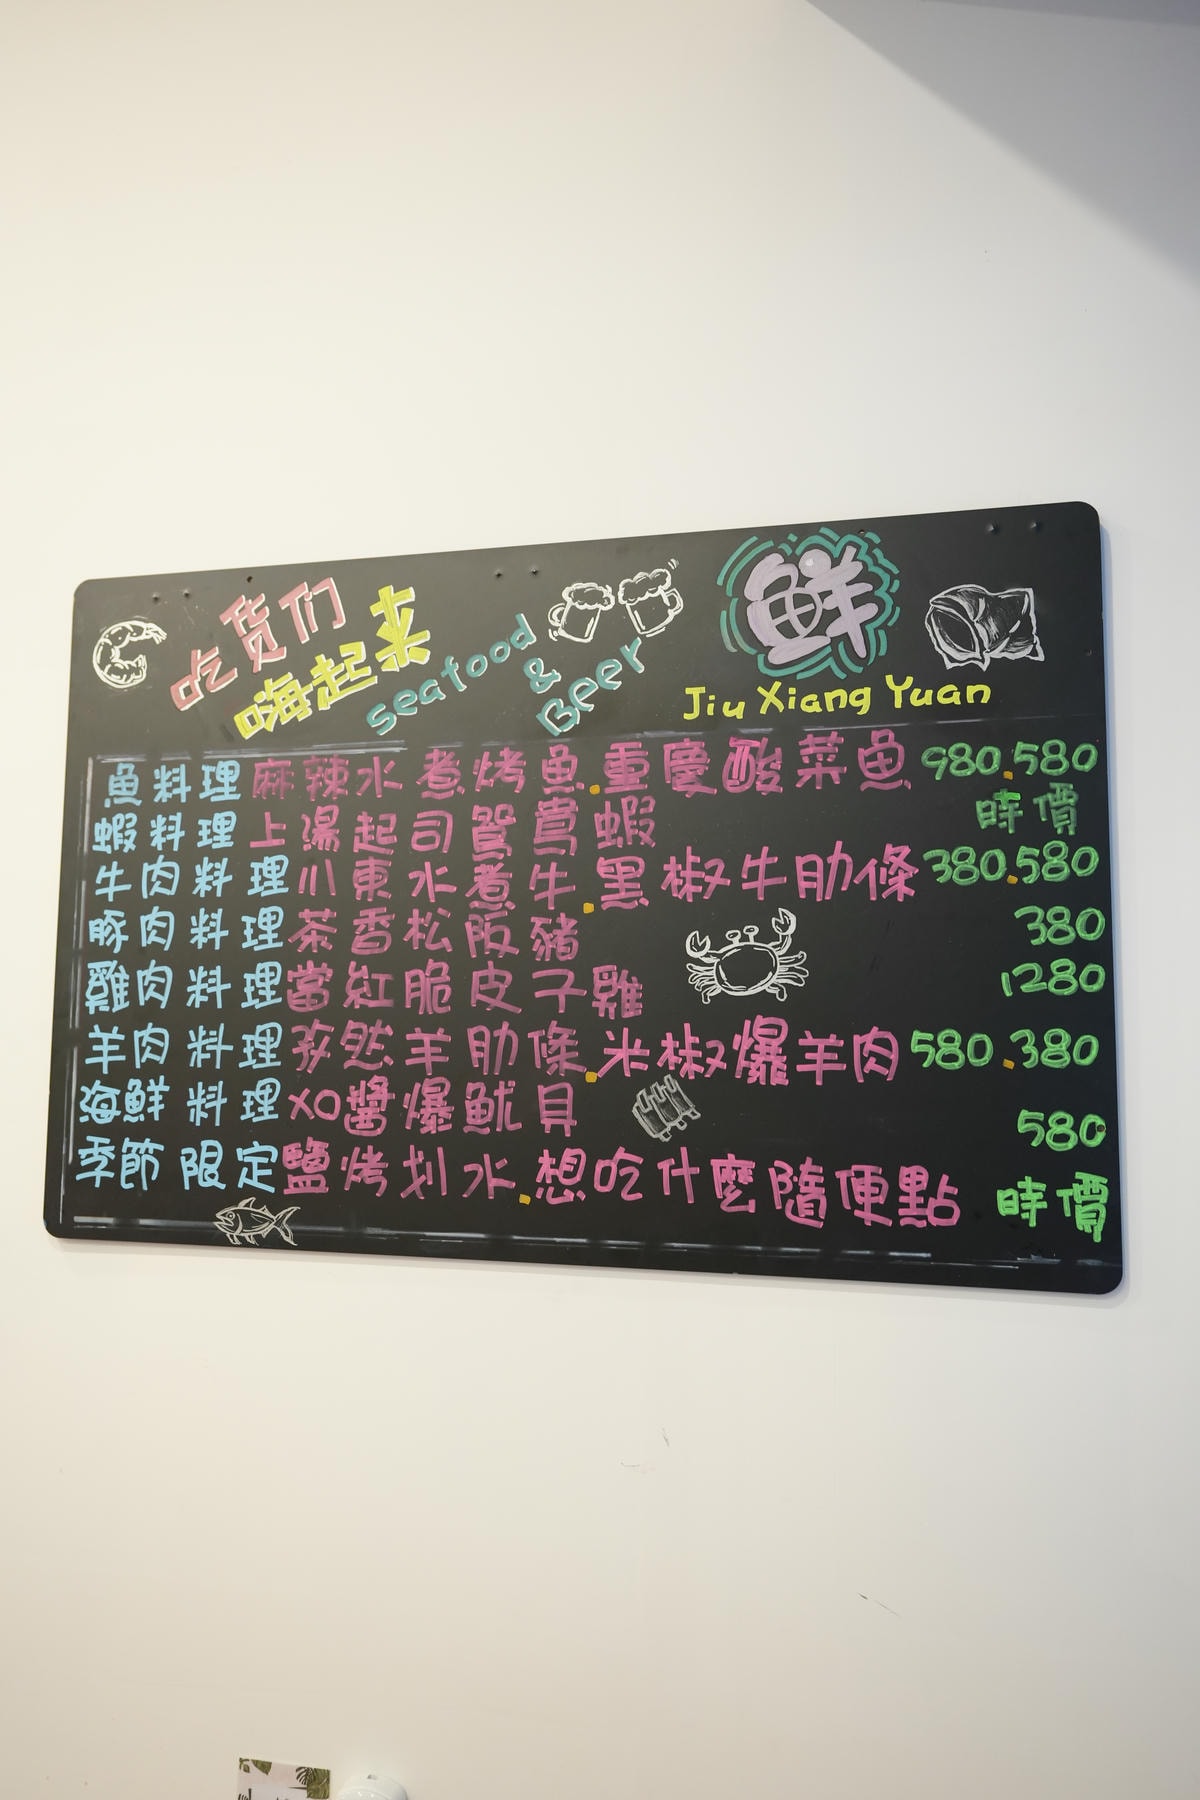 吃货们
嗨起来
seafood
&
Beer
鮮
Jiu Xiang Yuan
魚料理 麻辣水煮烤魚.重慶酸菜魚 980.580
蝦料理 上湯起司鴛鴦蝦 時價
牛肉料理 川東水煮牛.黑椒牛肋條 380.580
豚肉料理 茶香松阪豬 380
雞肉料理 當紅脆皮子雞 1280
羊肉料理 孜然羊肋條.米椒爆羊肉 580.380
海鮮料理 XO醬爆魷貝 580
季節限定 鹽烤划水.想吃什麼隨便點 時價